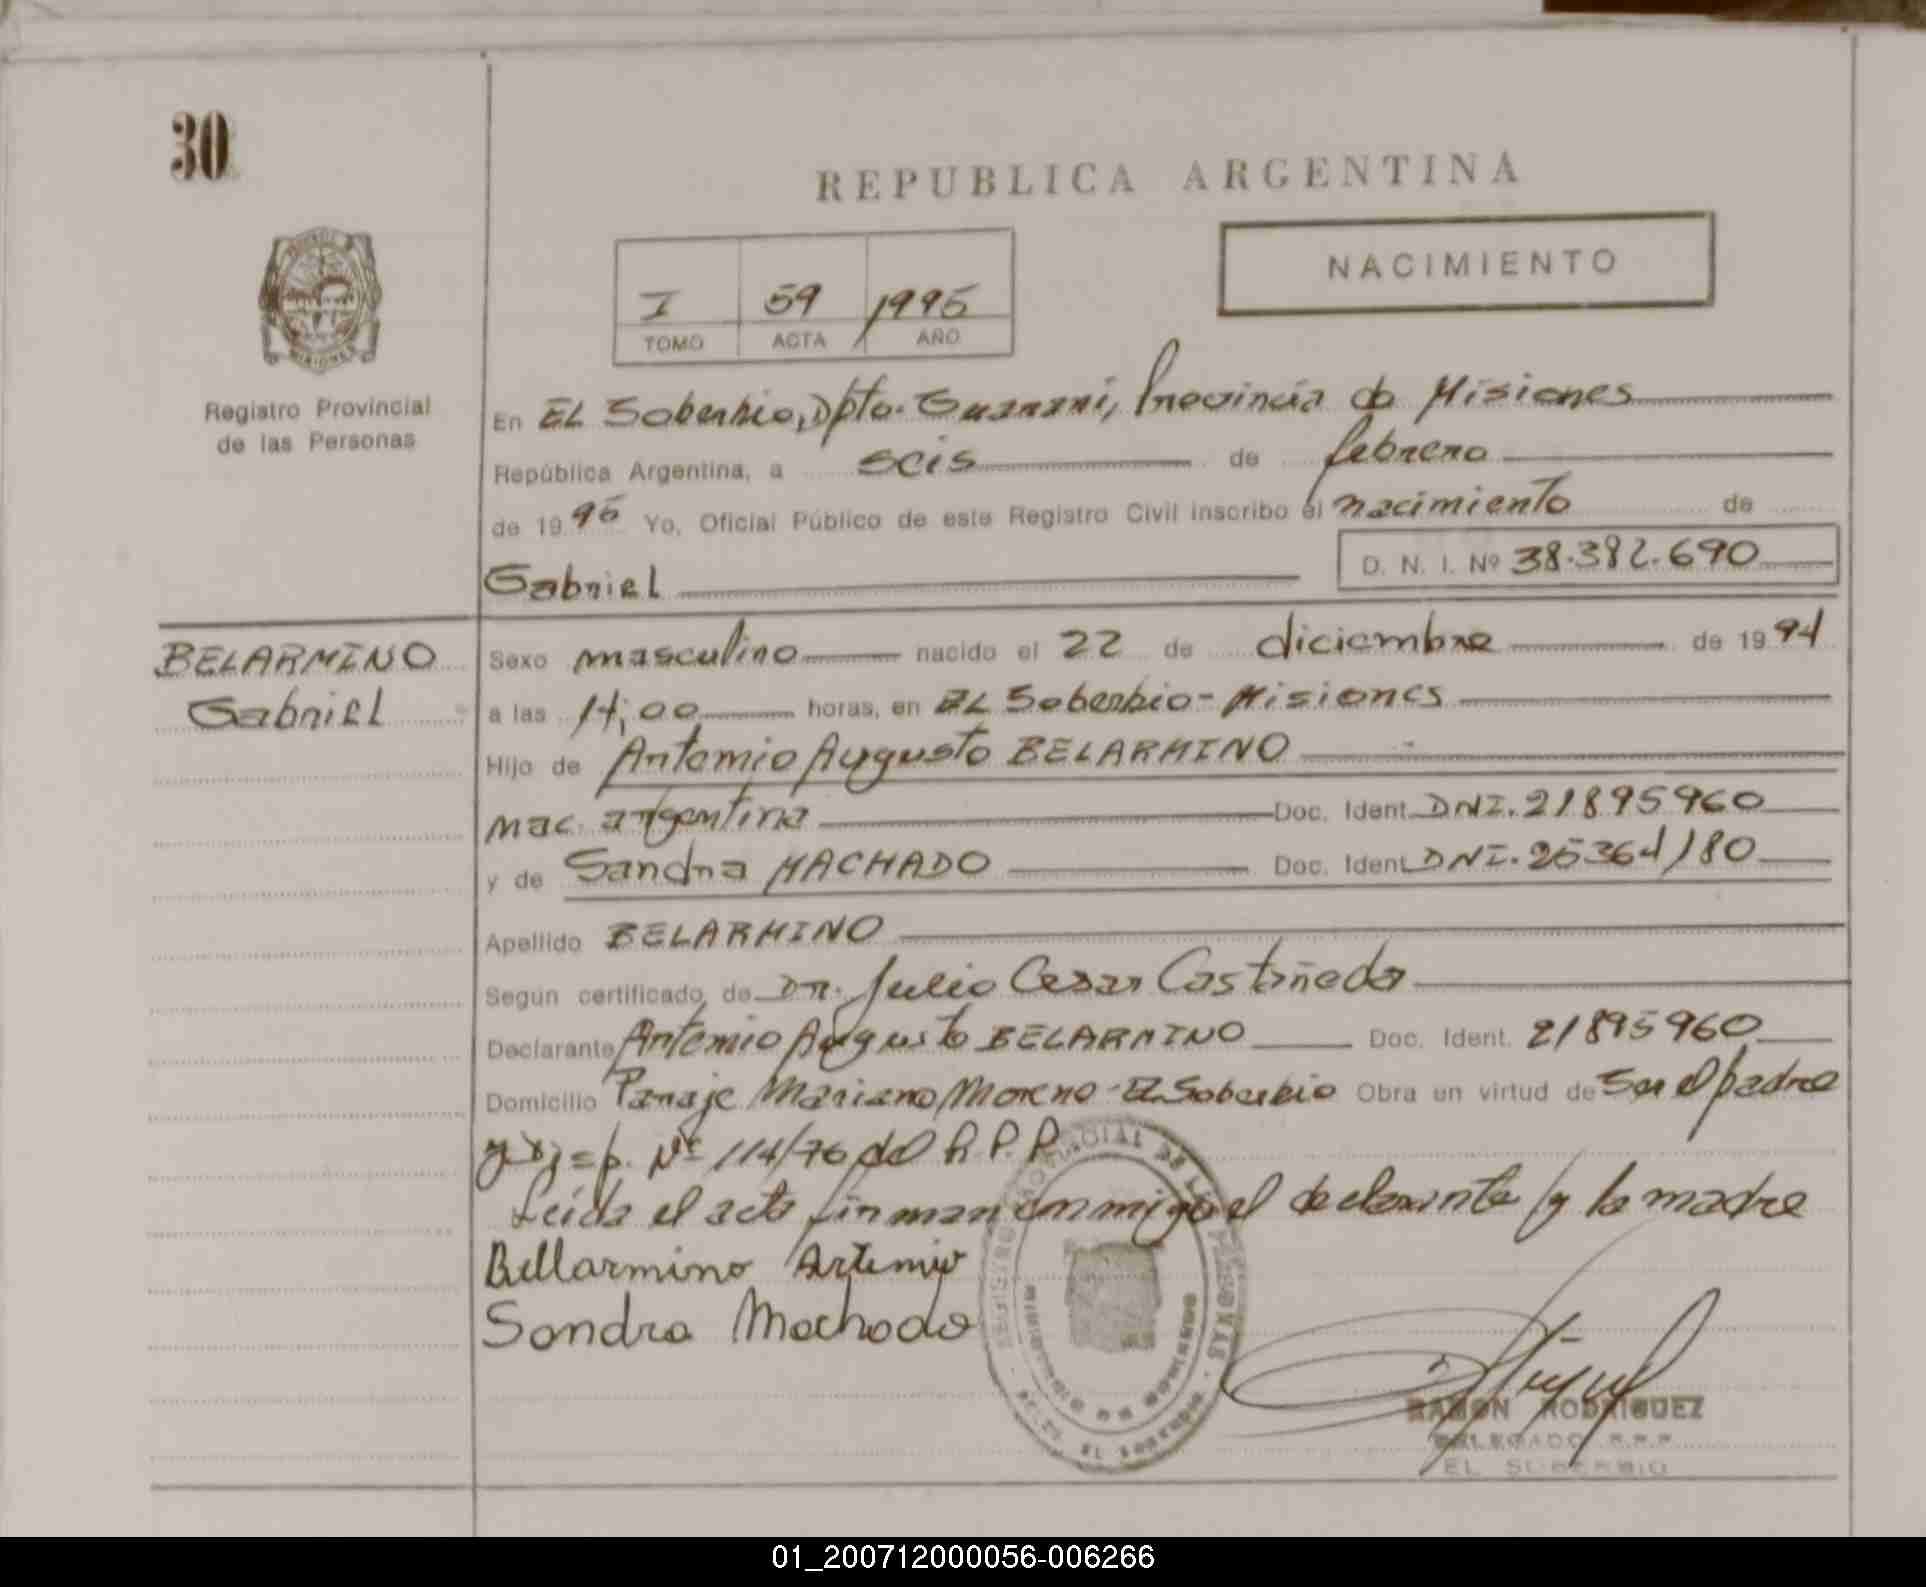 30
REPUBLICA ARGENTINA
NACIMIENTO
I 59 1995
TOMO ACTA AÑO
MISIONES
Registro Provincial
de las Personas
En EL Soberbio, Dpto. Guaraní, Provincia de Misiones
República Argentina, a seis de febrero
de 1995 Yo, Oficial Público de este Registro Civil inscribo el nacimiento de
Gabriel D. N. I. Nº 38.382.690
BELARMINO
Gabriel
Sexo masculino nacido el 22 de diciembre de 1994
a las 14,00 horas, en EL Soberbio - Misiones
Hijo de Artemio Augusto BELARMINO
nac. argentina Doc. Ident. DNI. 21895960
y de Sandra MACHADO Doc. Ident. DNI. 25364180
Apellido BELARMINO
Según certificado de Dr. Julio Cesar Castañeda
Declarante Artemio Augusto BELARMINO Doc. Ident. 21895960
Domicilio Paraje Mariano Moreno - El Soberbio Obra en virtud de Ser el padre
Nº 114/76 del R.P.P.
Leída el acta firman conmigo el declarante y la madre
Bellarmino Artemio
Sandra Machado
RAMON RODRIGUEZ
DELEGADO R.P.P.
EL SOBERBIO
01_200712000056-006266